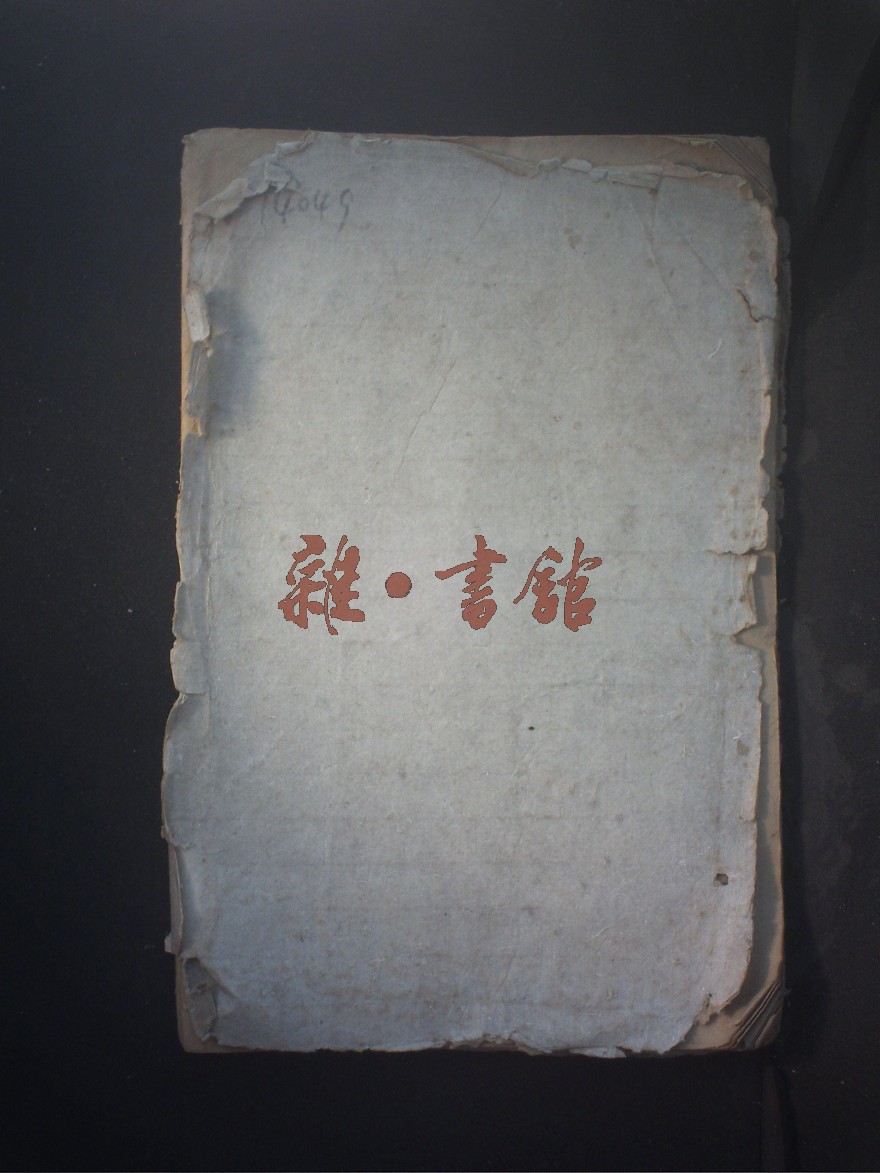 14049
雜·書舘